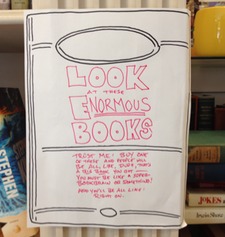 LOOK
AT THESE
ENORMOUS
BOOKS
TRUST ME! BUY ONE
OF THESE AND PEOPLE WILL
BE ALL LIKE, DUDE, THAT'S
A BIG BOOK YOU GOT
YOU MUST BE LIKE A SUPER-
BOOKBRAIN OR SOMETHING!
AND YOU'LL BE ALL LIKE:
RIGHT ON.
STEPHEN
JOKES
Irwin Shaw